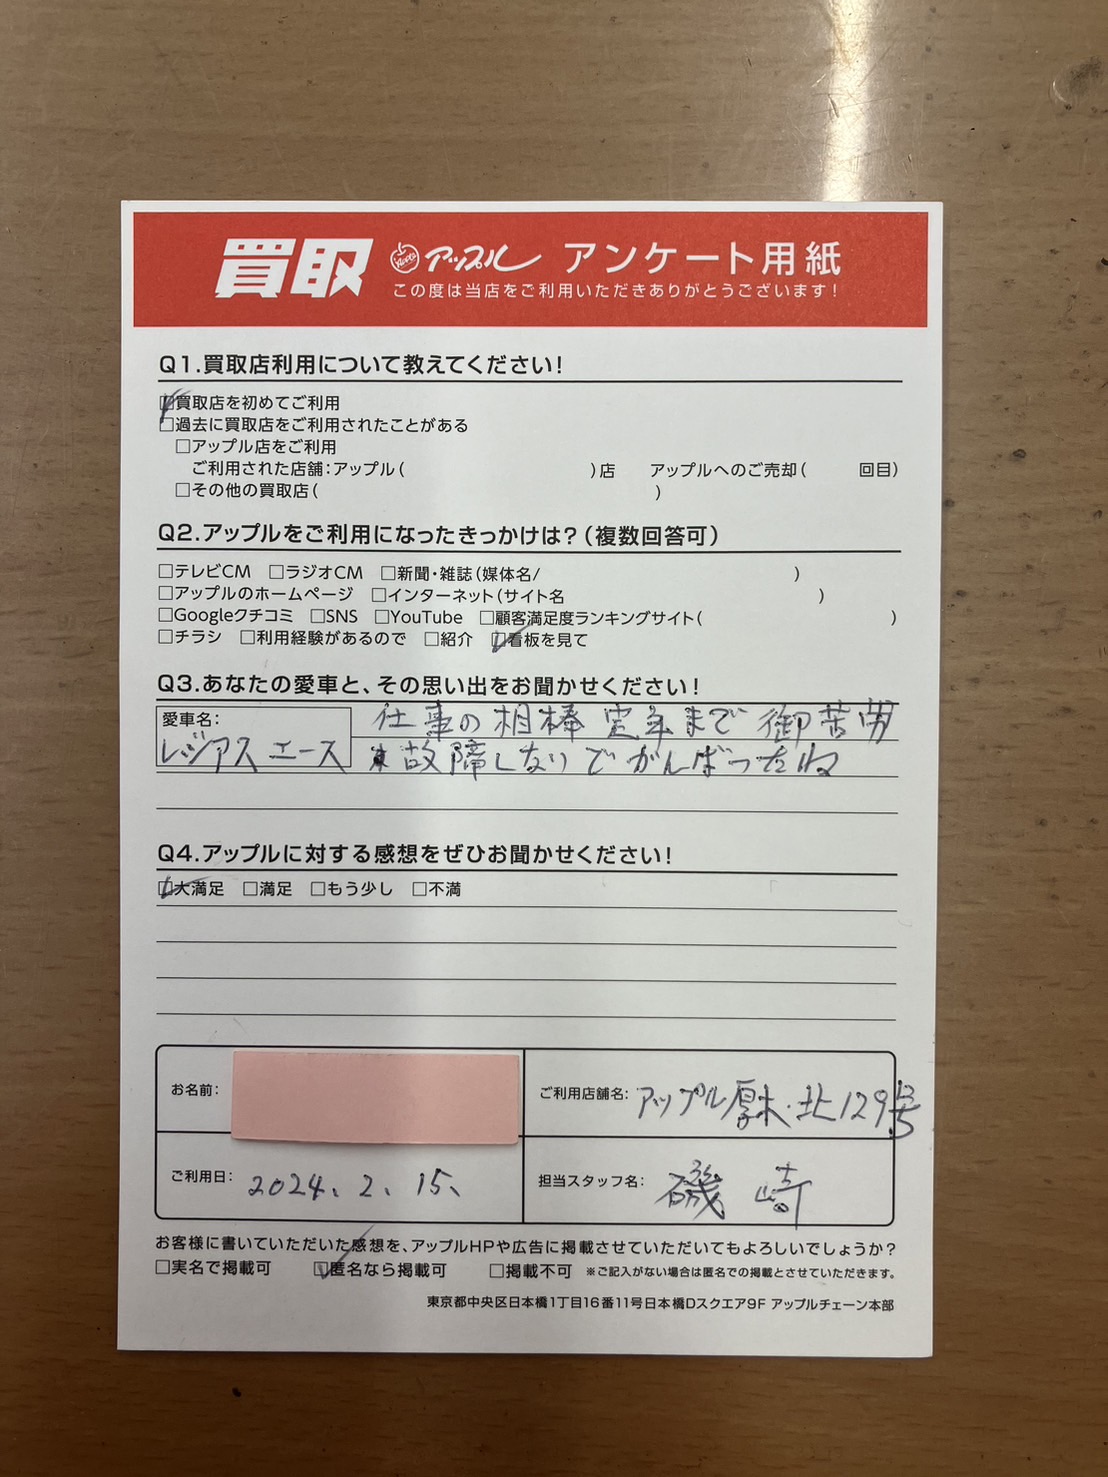 買取 Apple アップル アンケート用紙
この度は当店をご利用いただきありがとうございます!
Q1.買取店利用について教えてください!
☑買取店を初めてご利用
□過去に買取店をご利用されたことがある
□アップル店をご利用
ご利用された店舗:アップル( )店 アップルへのご売却( 回目)
□その他の買取店( )
Q2.アップルをご利用になったきっかけは?(複数回答可)
□テレビCM □ラジオCM □新聞・雑誌(媒体名/ )
□アップルのホームページ □インターネット(サイト名 )
□Googleクチコミ □SNS □YouTube □顧客満足度ランキングサイト( )
□チラシ □利用経験があるので □紹介 ☑看板を見て
Q3.あなたの愛車と、その思い出をお聞かせください!
愛車名: 仕事の相棒 定年まで 御苦労
レジアスエース 故障しないでがんばったね
Q4.アップルに対する感想をぜひお聞かせください!
☑大満足 □満足 □もう少し □不満
お名前: ご利用店舗名: アップル厚木・北129号
ご利用日: 2024、2、15、 担当スタッフ名: 磯崎
お客様に書いていただいた感想を、アップルHPや広告に掲載させていただいてもよろしいでしょうか?
□実名で掲載可 ☑匿名なら掲載可 □掲載不可 ※ご記入がない場合は匿名での掲載とさせていただきます。
東京都中央区日本橋1丁目16番11号日本橋Dスクエア9F アップルチェーン本部